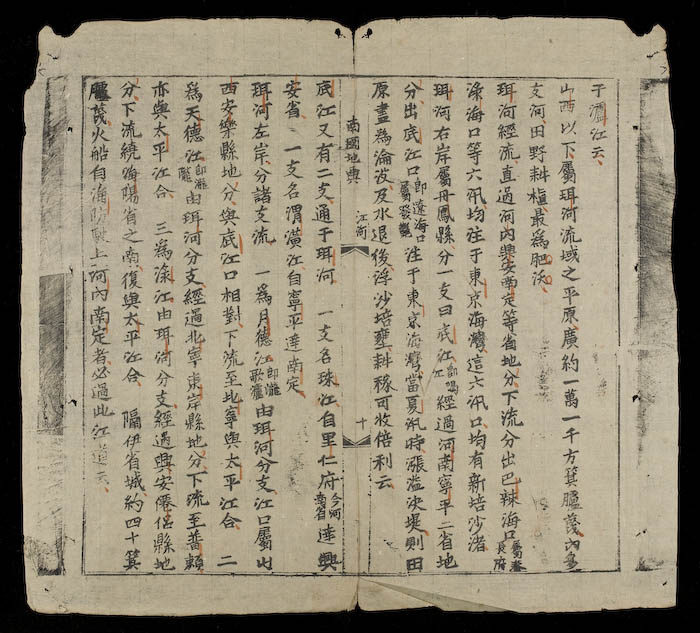 山西以下屬珥河流域之平原廣約一萬一千方箕臚蔑內多
支河田野耕植最爲肥沃
珥河經流直過河內興安南定等省地分下流分出巴辣海口屬春長府
海口等六汛均注于東京海灣這六汛口均有新培沙渚
珥河右岸屬丹鳳縣分一支曰底江即喝江經過河南寧平二省地
分出底江口即遼海口屬發艷注于東京海灣當夏汛時漲溢決堤則田
原盡爲淪沒及水退後浮沙培壅耕稼可收倍利云
南國地輿 江河 十
底江又有二支通于珥河 一支名珠江自里仁府今河南省達興
安省 一支名渭潢江自寧平達南定
珥河左岸分諸支流 一爲月德江即灘歌㿜由珥河分支江口屬
西安樂縣地分與底江口相對下流至北寧與太平江合 二
爲天德江即灘由珥河分支經過北寧東岸縣地分下流至普賴
亦與太平江合 三爲淥江由珥河分支經過興安僊侶縣地
分下流繞海陽省之南復與太平江合 隔伊省城約四十箕
臚蔑火船自海防駛上河內南定者必過此江道云